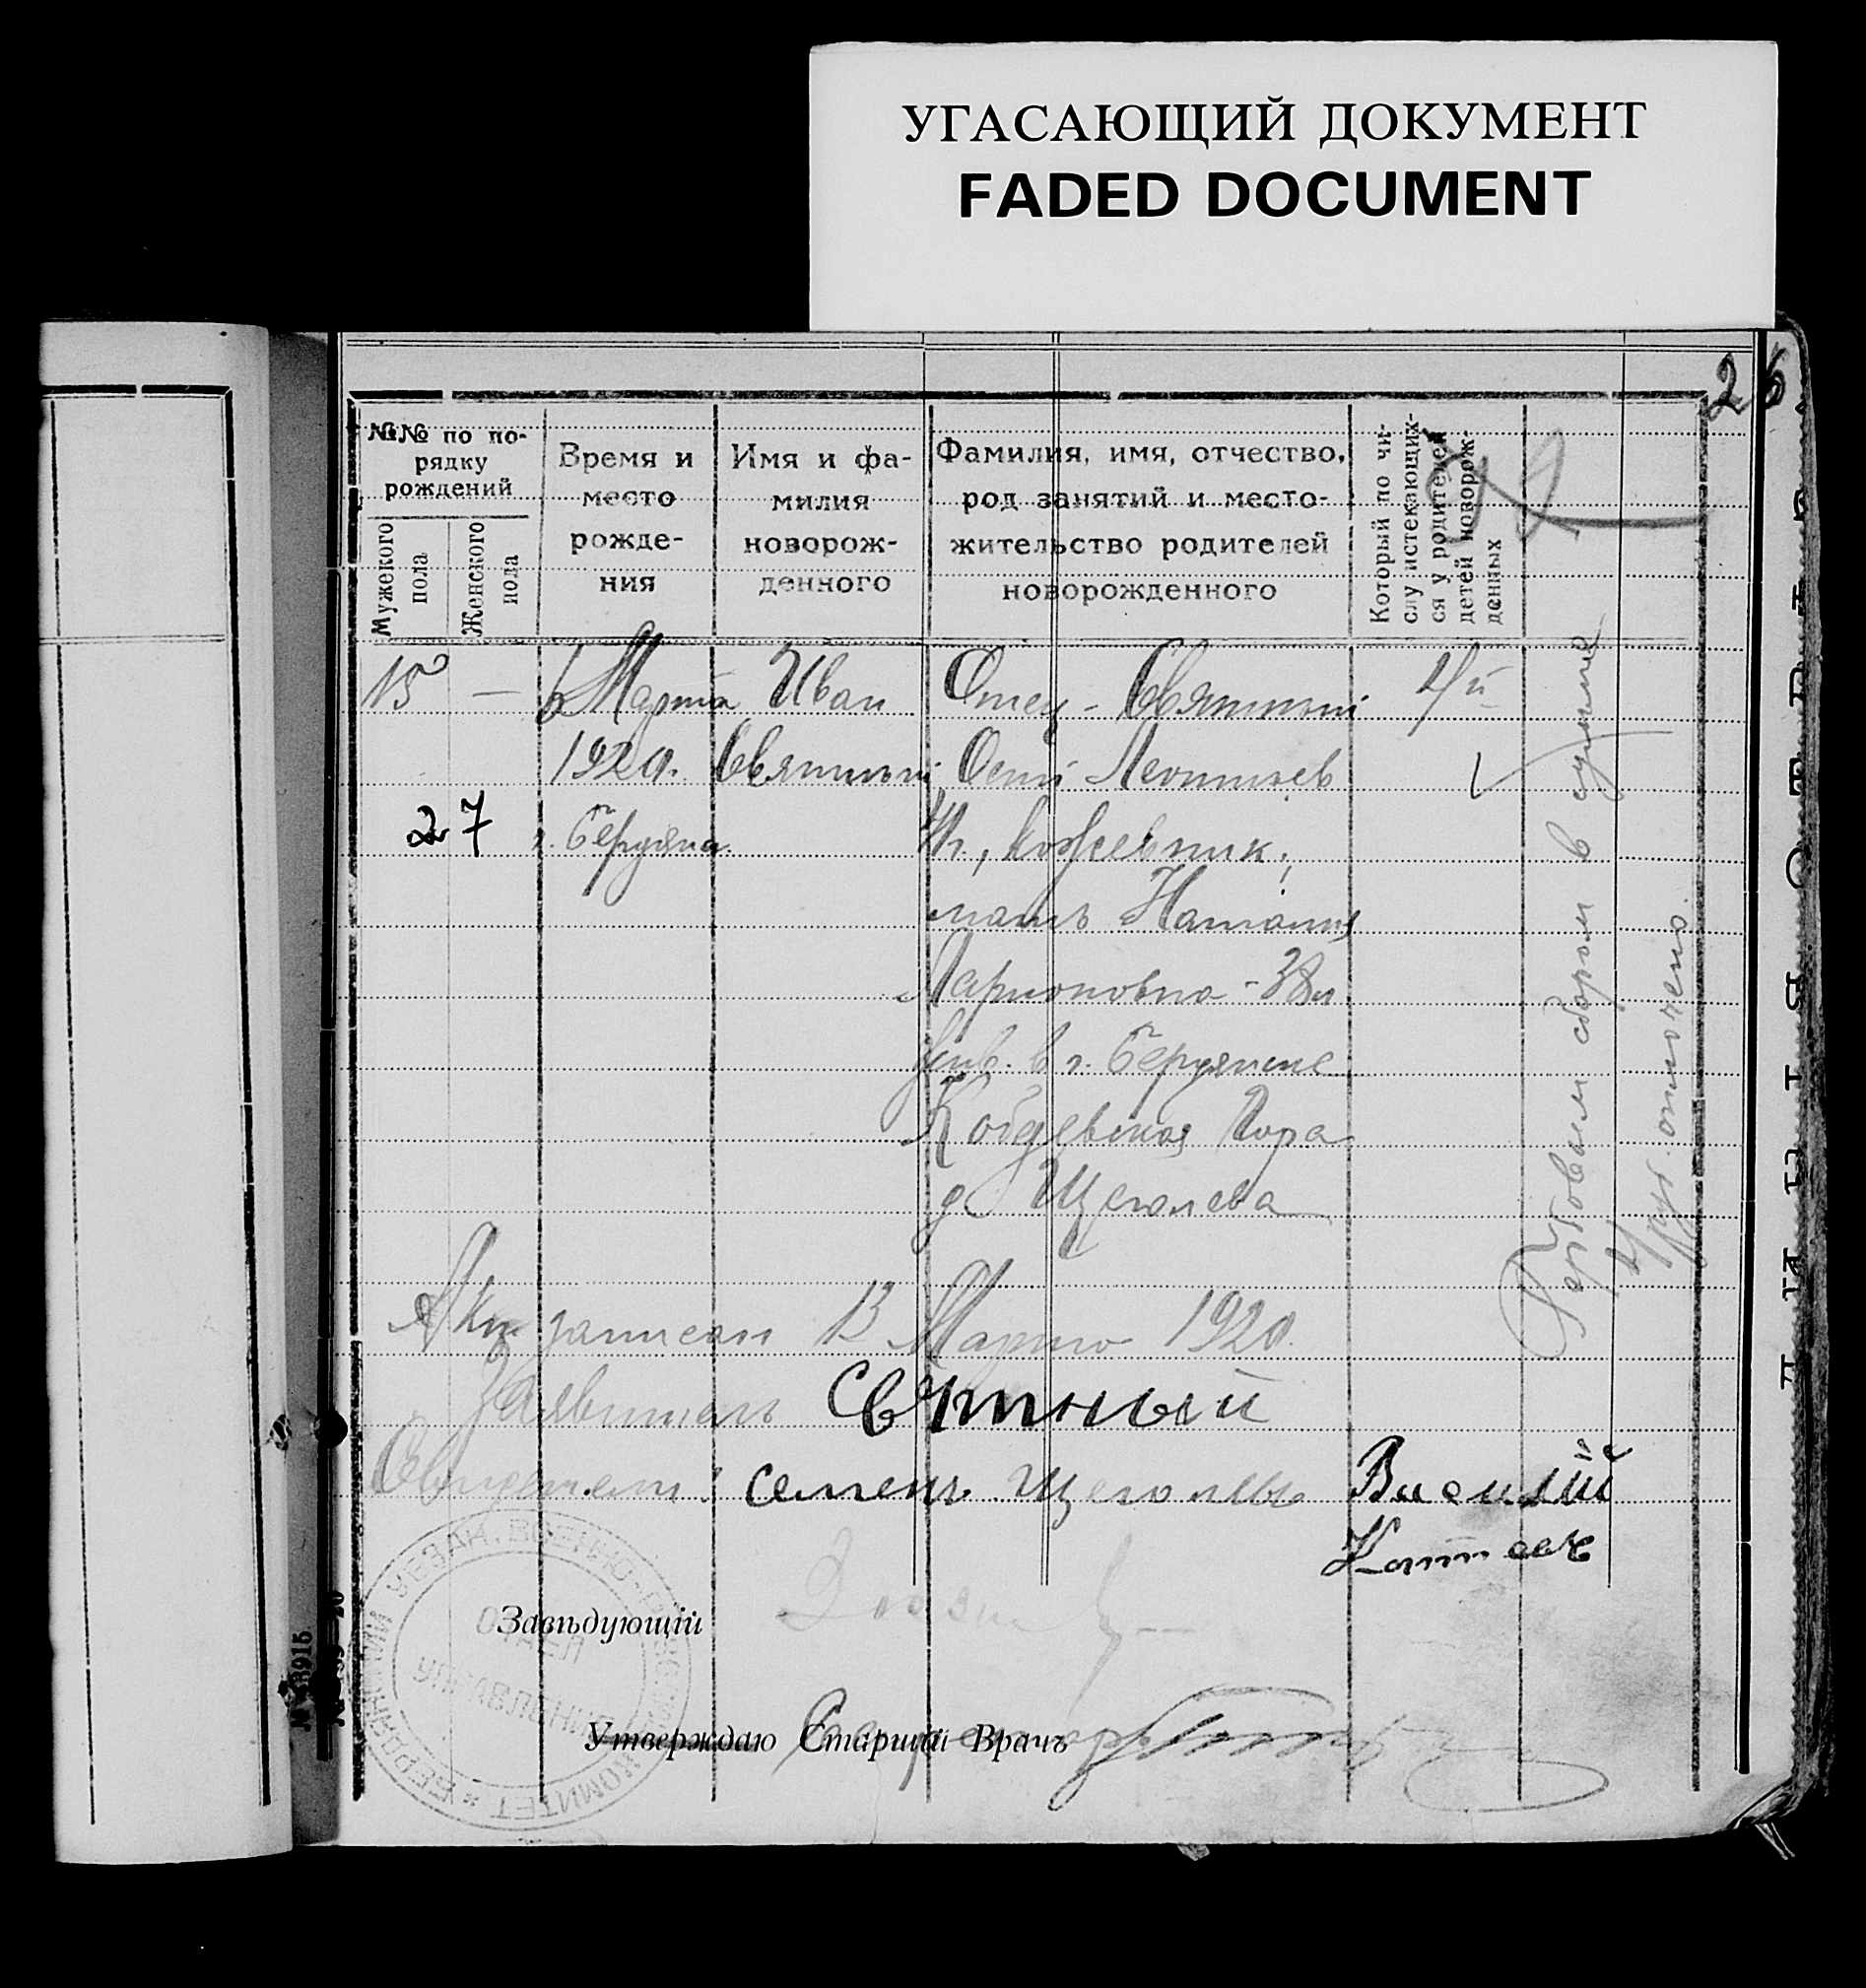 УГАСАЮЩИЙ ДОКУМЕНТ
FADED DOCUMENT
26
№№ по по-
рядку
рождений
Мужского
пола
Женского
пола
Время и
место
рожде-
ния
Имя и фа-
милия
новорож-
денного
Фамилия, имя, отчество,
род занятий и место-
жительство родителей
новорожденного
Который по чи-
слу истекающих-
ся у родителей
детей новорож-
денных
15 — 6 Марта Иван Отец - Святный 4й
1920. Святный Осип Леонтьев
27 г. Бердянск.
кожевник,
мать Наталия
Ларионовна - 38 л
жив. в г. Бердянске
Кобяевская Гора
д Щеголева
Гербовым сбором в сумме
4 руб. оплочено.
Акт записан 13 Марта 1920.
Заявитель Святный
Свидетели: Семенъ Щеголевъ Василий
Завѣдующій
Утверждаю Старшій Врачъ
БЕРДЯНСКИЙ УЕЗДН. ВОЕННО-РЕВ. КОМИТЕТ *
ОТДЕЛ
УПРАВЛЕНИЯ